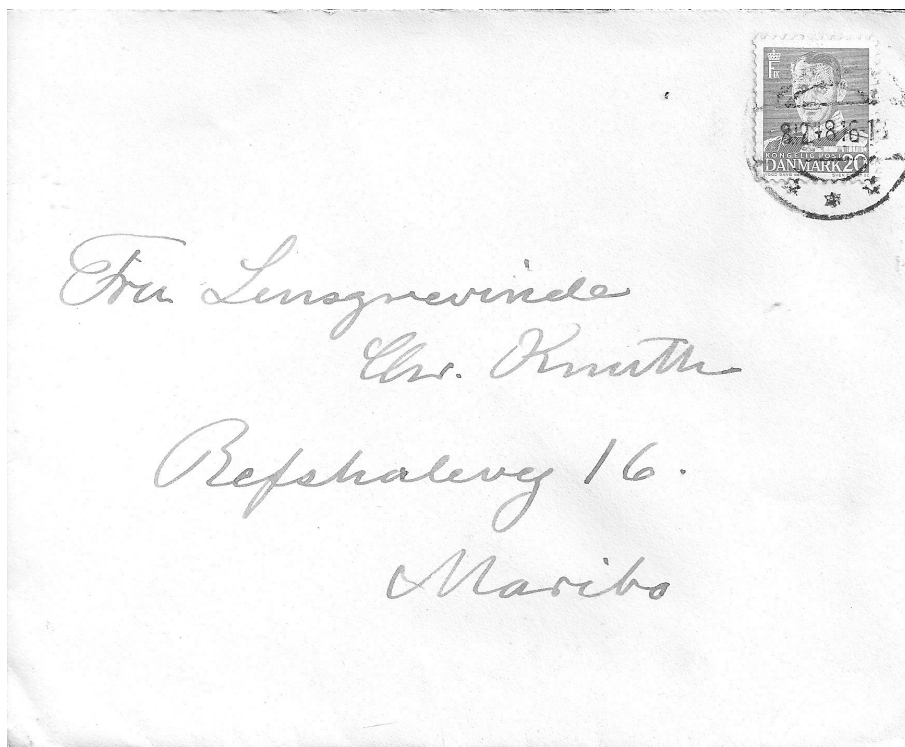 F IX
8.2.48.16-1
KONGELIG POST
DANMARK 20
Fru Lensgrevinde
Chr. Knuth
Refshalevej 16.
Maribo